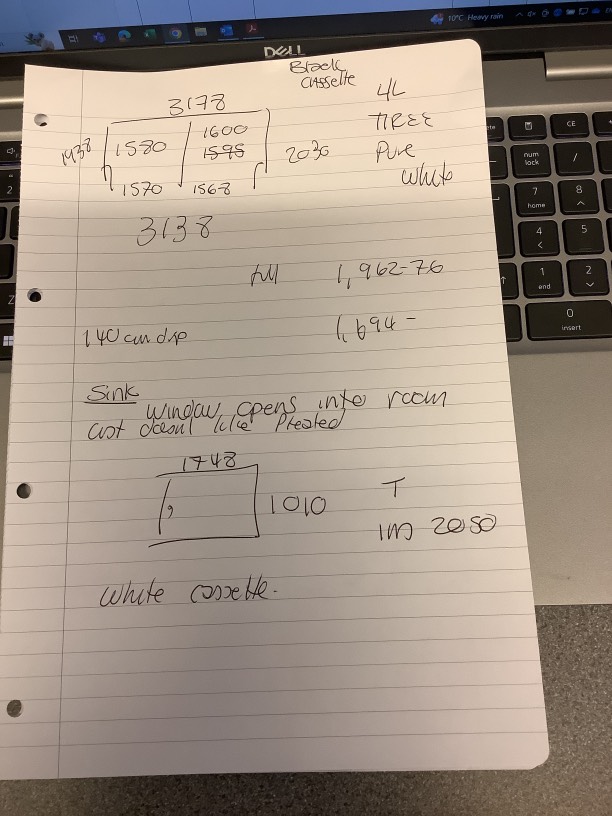 10°C Heavy rain
DELL
Black
Cassette
3178
4L
1938
1580
1600
1595
2030
TIREE
Pure
White
1570
1568
3138
full 1,962-76
140cm drp
1,694-
Sink
Window opens into room
cust doesn't like Pleated
1748
1010
T
1m 2050
White cassette.
CE
num
lock
/
7
home
8
4
5
1
end
2
0
insert